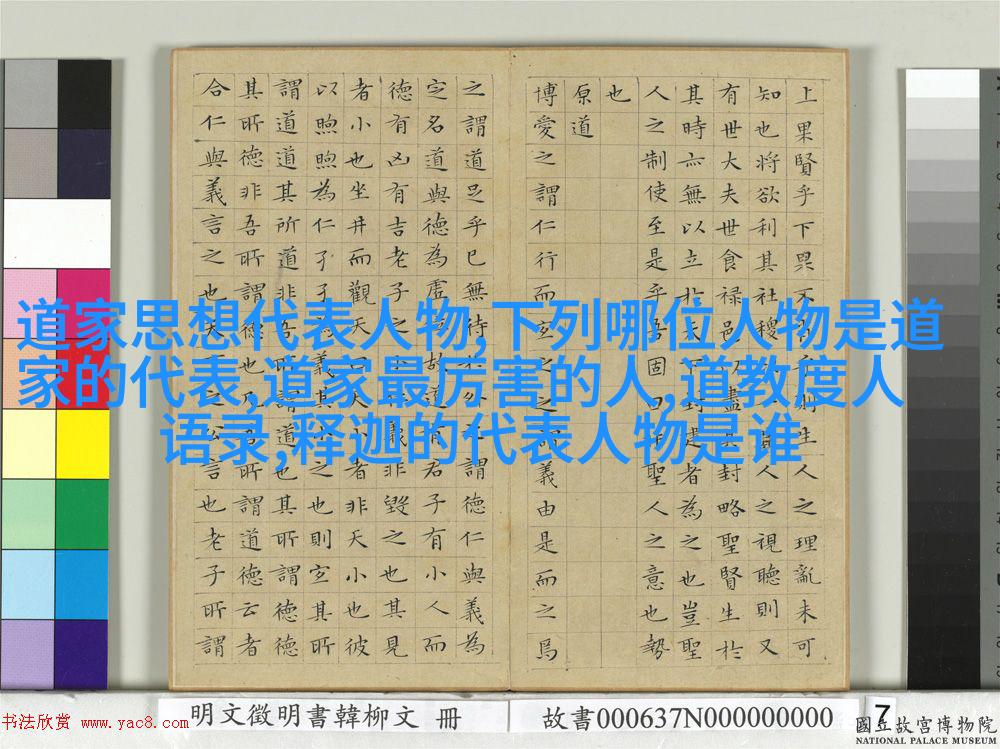 道家思想代表人物,下列哪位人物是道
家的代表,道家最厉害的人,道教度人
语录,释迦的代表人物是谁
上果賢乎下果不肖乎則生人之理亂未可
知也將欲利其社稷以一其人之視聽則又
有世大夫世食祿邑以盡其封略聖賢生於
其時亦無以立於天下封建者為之也豈聖
人之制使至是乎吾固曰非聖人之意也勢
也
原道
博愛之謂仁行而宜之之謂義由是而之焉
之謂道足乎已無待於外之謂德仁與義為
定名道與德為虛位故道有君子有小人而
德有凶有吉老子之小仁義非毀之也其見
者小也坐井而觀天曰天小者非天小也彼
以煦煦為仁孑孑為義其小之也則宜其所
謂道道其所道非吾所謂道也其所謂德德
其所德非吾所謂德也凡吾所謂道德云者
合仁與義言之也天下之公言也老子所謂
明文徵明書韓柳文 冊
故書000637N000000000
7
國立故宮博物院
NATIONAL PALACE MUSEUM
书法欣赏 www.yac8.com